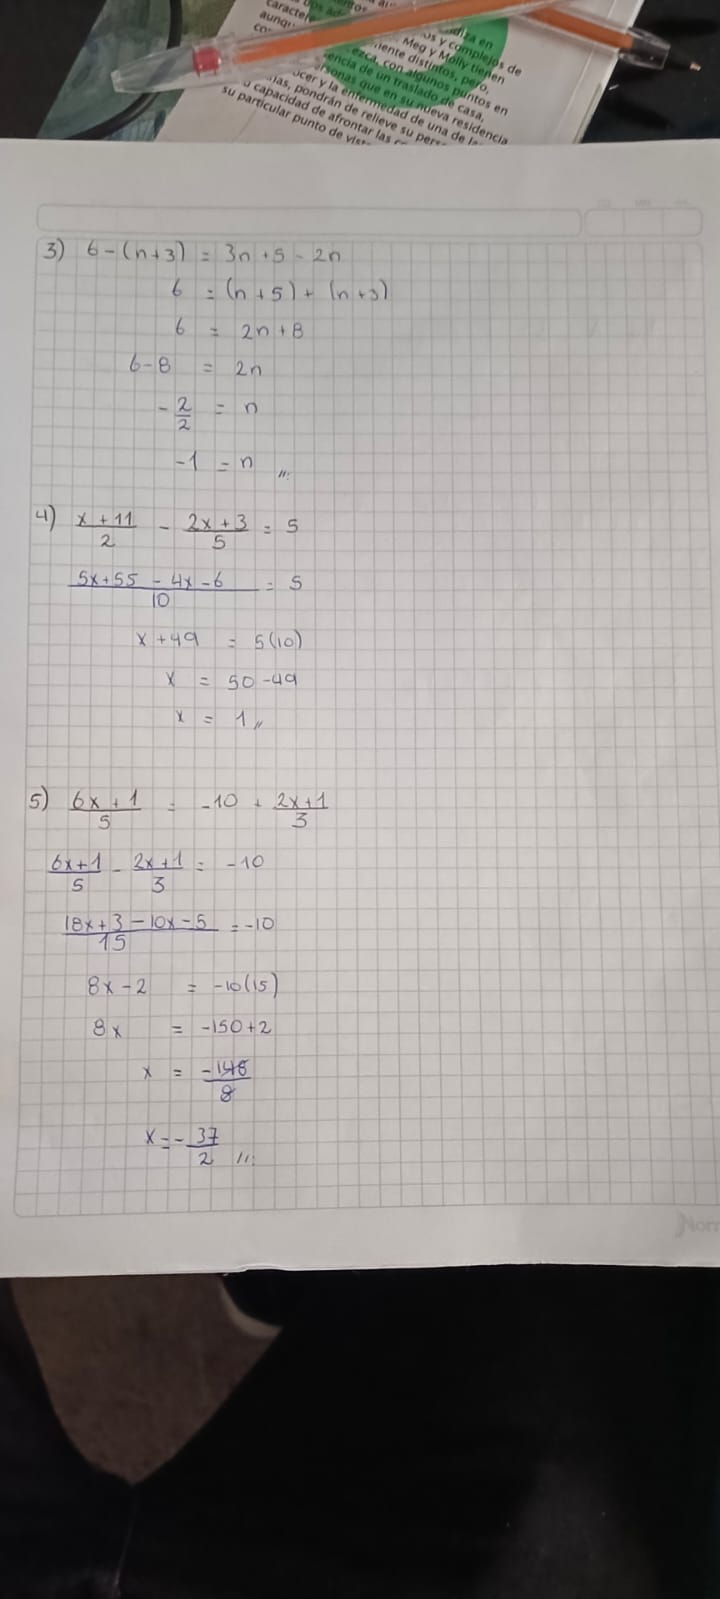 caracte
aunqu
y complejos de
Meg y Molly tienen
distintos, pero,
con algunos puntos en
de un traslado de casa,
que en su nueva residencia
y la enfermedad de una de
pondrán de relieve su
capacidad de afrontar las
su particular punto de
3) 6-(n+3) = 3n+5-2n
6 = (n+5)+(n+3)
6 = 2n+8
6-8 = 2n
-2/2 = n
-1 = n
4) x+11/2 - 2x+3/5 = 5
5x+55-4x-6/10 = 5
x+49 = 5(10)
x = 50-49
x = 1
5) 6x+1/5 = -10+2x+1/3
6x+1/5 - 2x+1/3 = -10
18x+3-10x-5/15 = -10
8x-2 = -10(15)
8x = -150+2
x = -148/8
x = -37/2
Norm